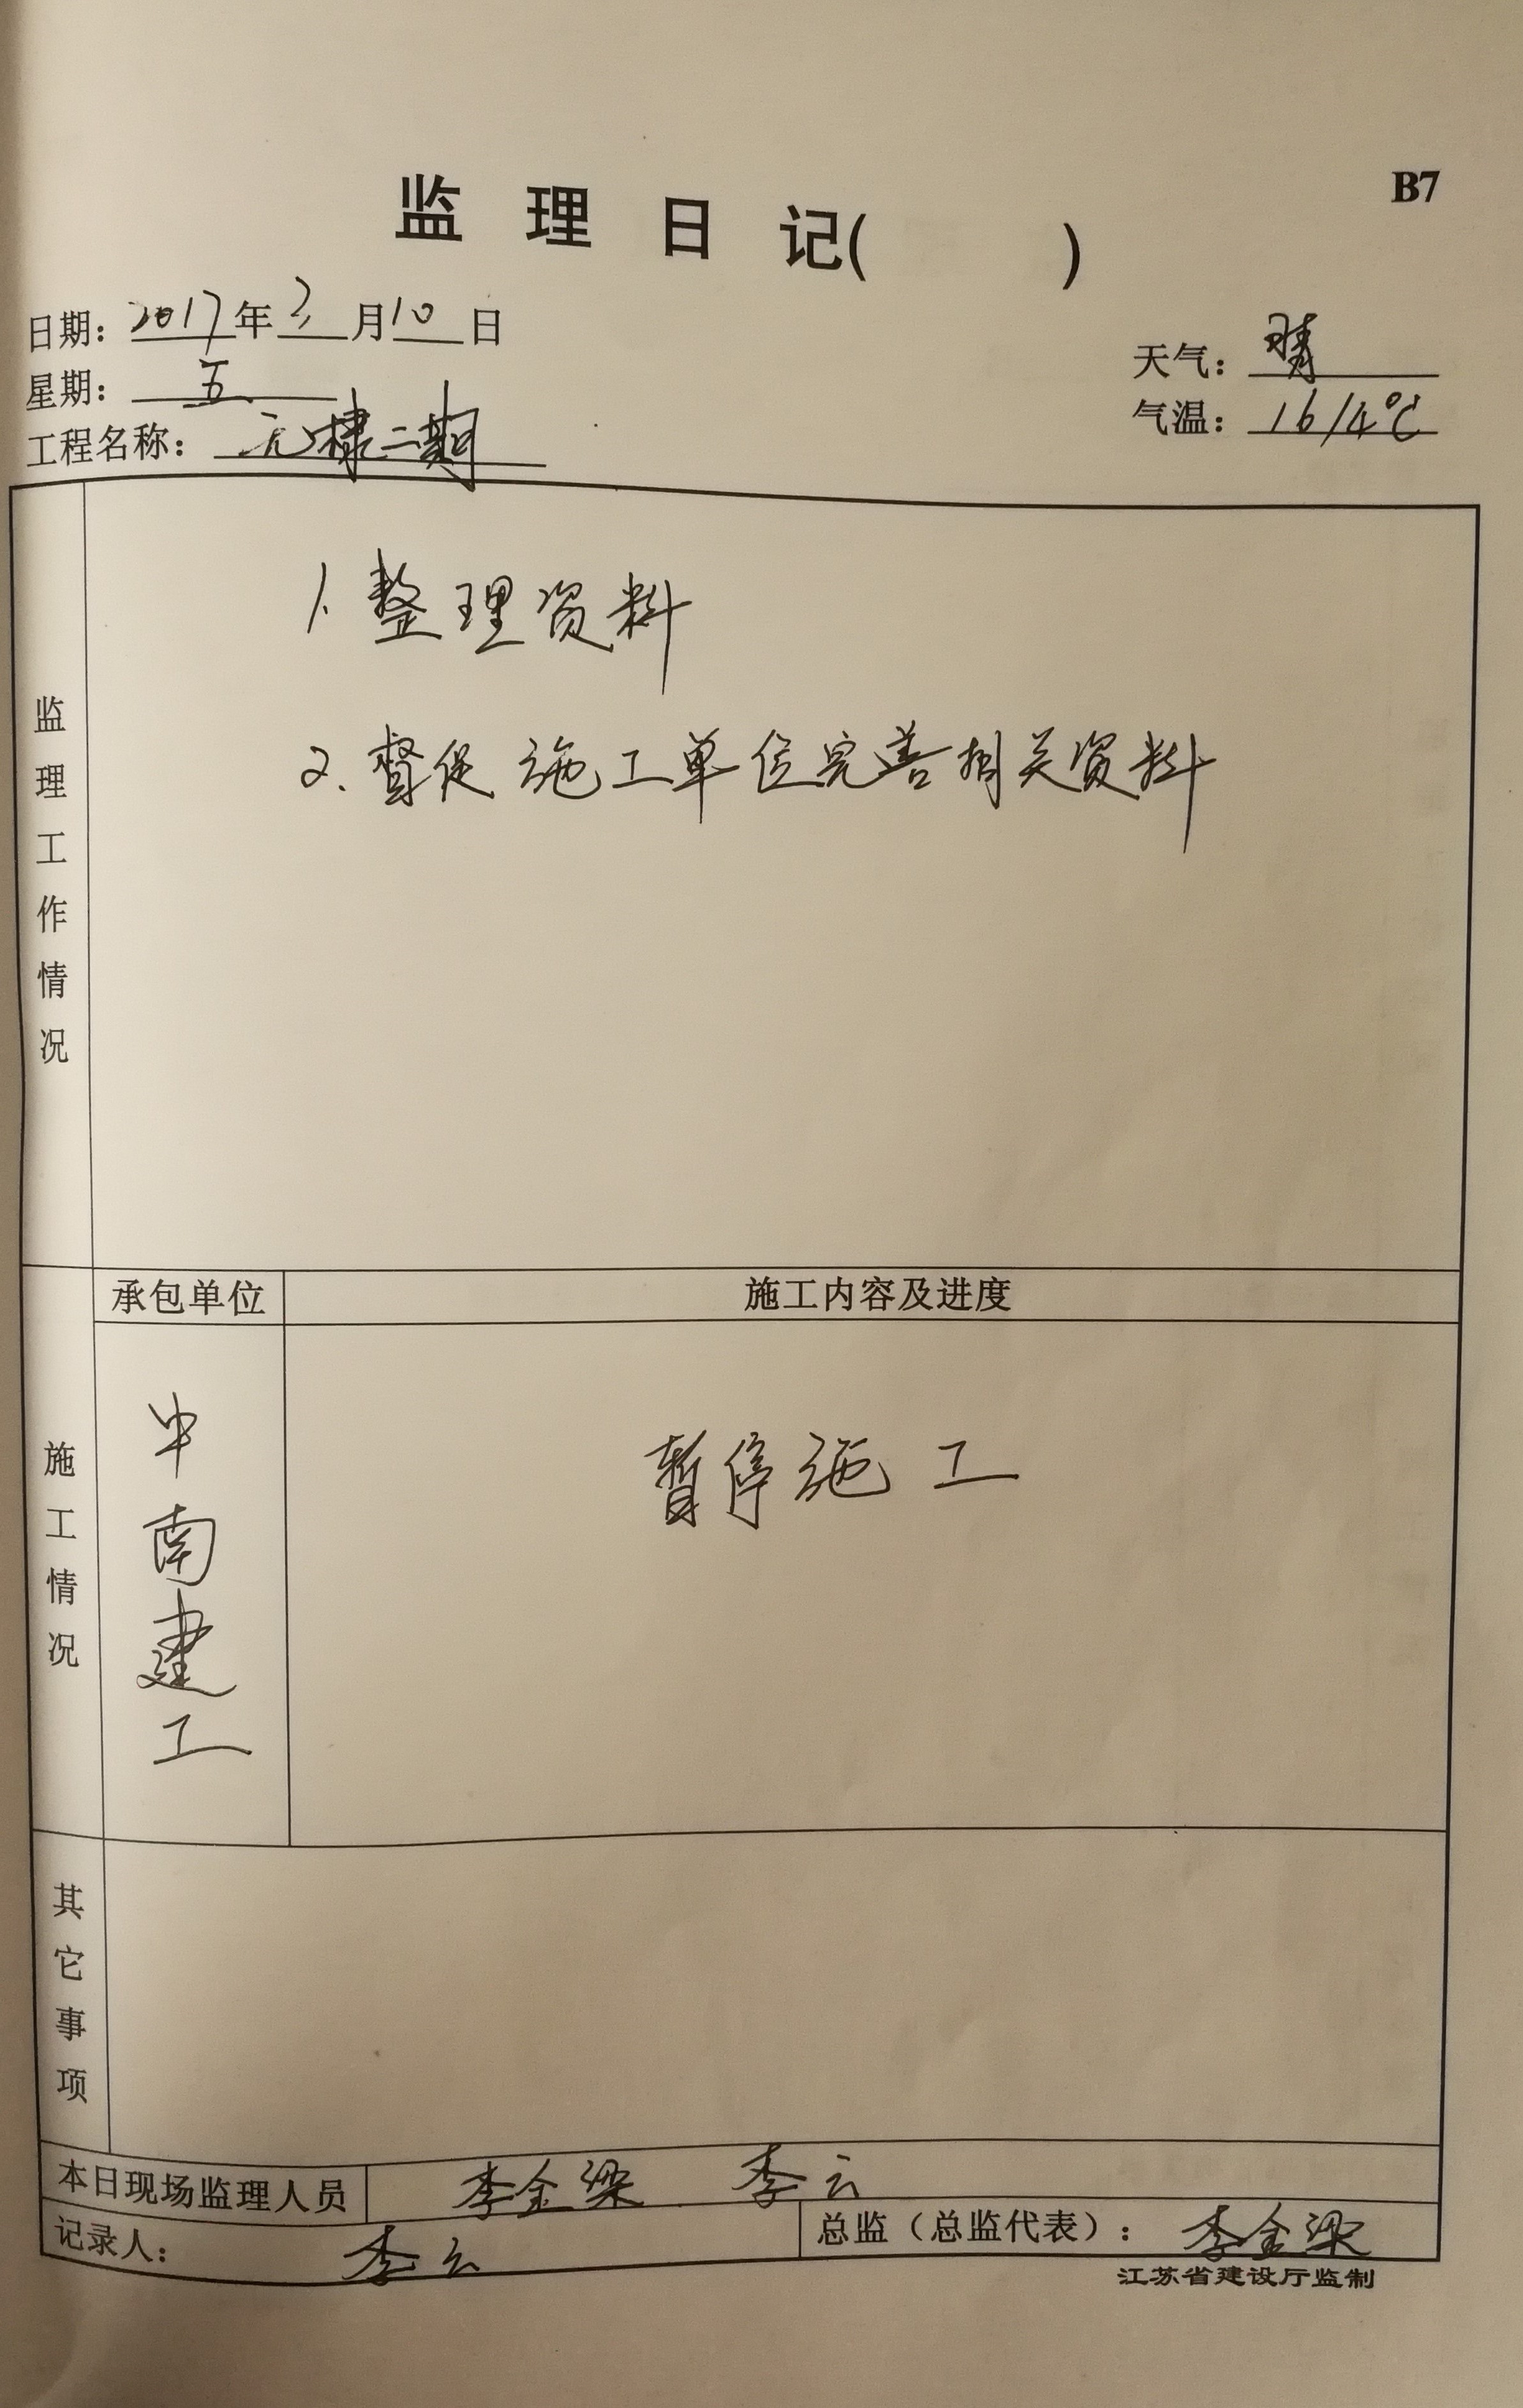 B7
监理日记(　　)
日期：2017年3月10日
星期：五
天气：晴
工程名称：元棣二期
气温：16/4℃
监理工作情况
1.整理资料
2.督促施工单位完善相关资料
施工情况
承包单位
施工内容及进度
中南建工
暂停施工
其它事项
本日现场监理人员
李金梁 李云
记录人：李云
总监（总监代表）：李金梁
江苏省建设厅监制